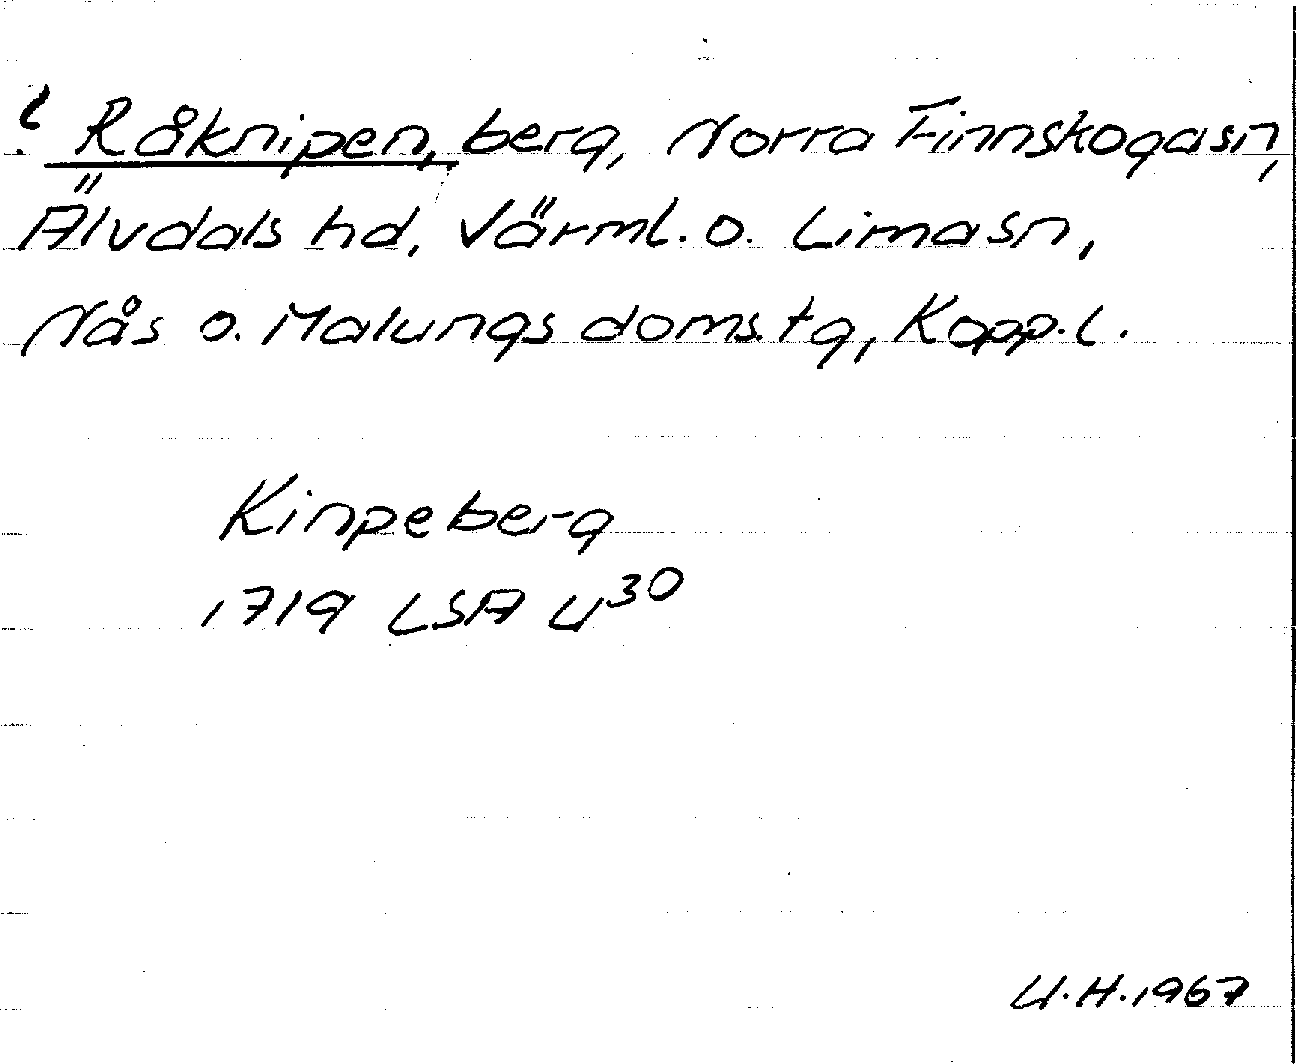 ? Råknipen, berg, Norra Finnskogasn,
Älvdals hd, Värml. o. Lima sn,
Nås o. Malungs doms.tg, Kopp.l.
Kinpeberg
1719 LSA U³⁰
U.H.1967